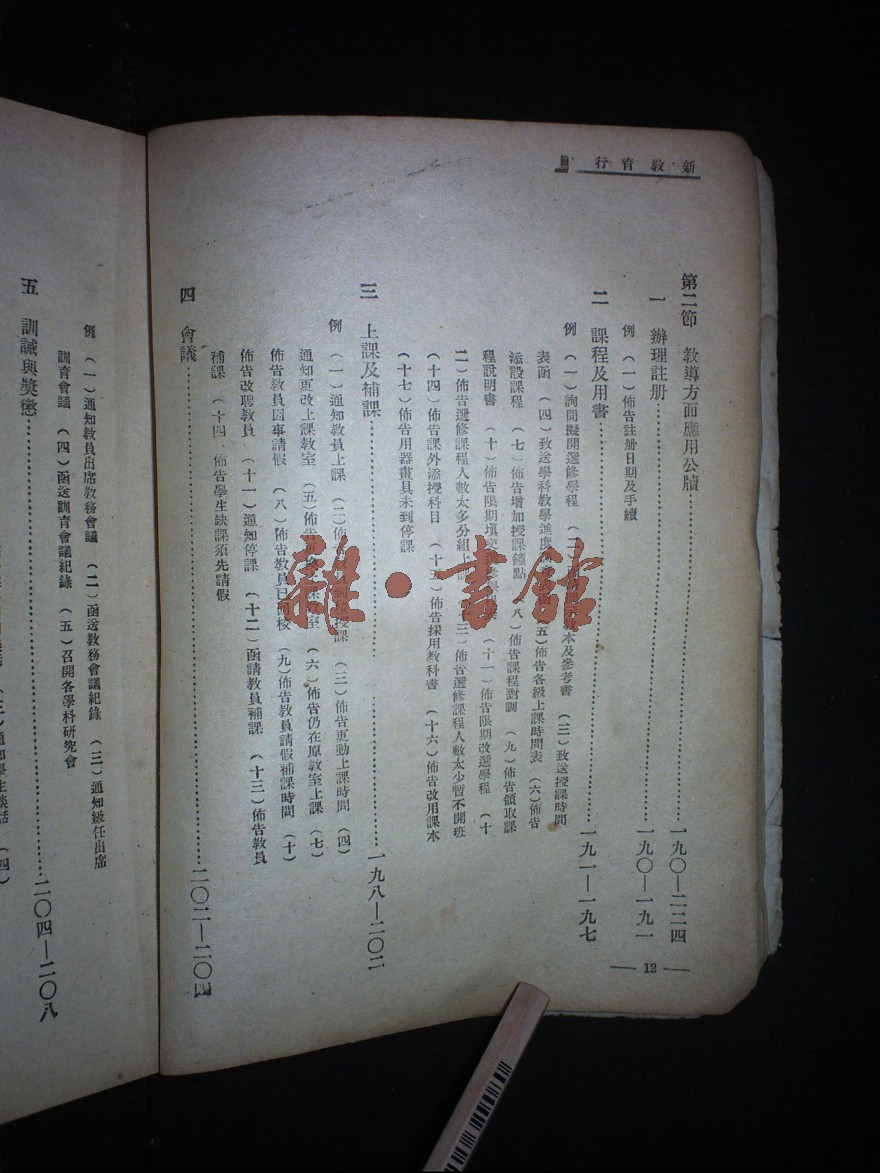 新教育行
第二節　教導方面應用公牘……一九〇—二二四
一　辦理註册……一九〇—一九一
例　(一)佈告註册日期及手續
二　課程及用書……一九一—一九七
例　(一)詢問擬開選修學程　(二)本及參考書　(三)致送授課時間
表函　(四)致送學科教學進度　(五)佈告各級上課時間表　(六)佈告
添設課程　(七)佈告增加授課鐘點　(八)佈告課程對調　(九)佈告領取課
程說明書　(十)佈告限期填　(十一)佈告限期改選學程　(十
二)佈告選修課程人數太多分組上課　(十三)佈告選修課程人數太少暫不開班
(十四)佈告課外添授科目　(十五)佈告採用教科書　(十六)佈告改用課本
(十七)佈告用器畫具未到停課
三　上課及補課……一九八—二〇二
例　(一)通知教員上課　(二)佈告到授課　(三)佈告更動上課時間　(四)
通知更改上課教室　(五)佈告課教室　(六)佈告仍在原教室上課　(七)
佈告教員因事請假　(八)佈告教員已回校　(九)佈告教員請假補課時間　(十)
佈告改聘教員　(十一)通知停課　(十二)函請教員補課　(十三)佈告教員
補課　(十四)佈告學生缺課須先請假
四　會議……二〇二—二〇四
12
例　(一)通知教員出席教務會議　(二)函送教務會議紀錄　(三)通知級任出席
訓育會議　(四)函送訓育會議紀錄　(五)召開各學科研究會
五　訓誡與獎懲……二〇四—二〇八
雜·書館